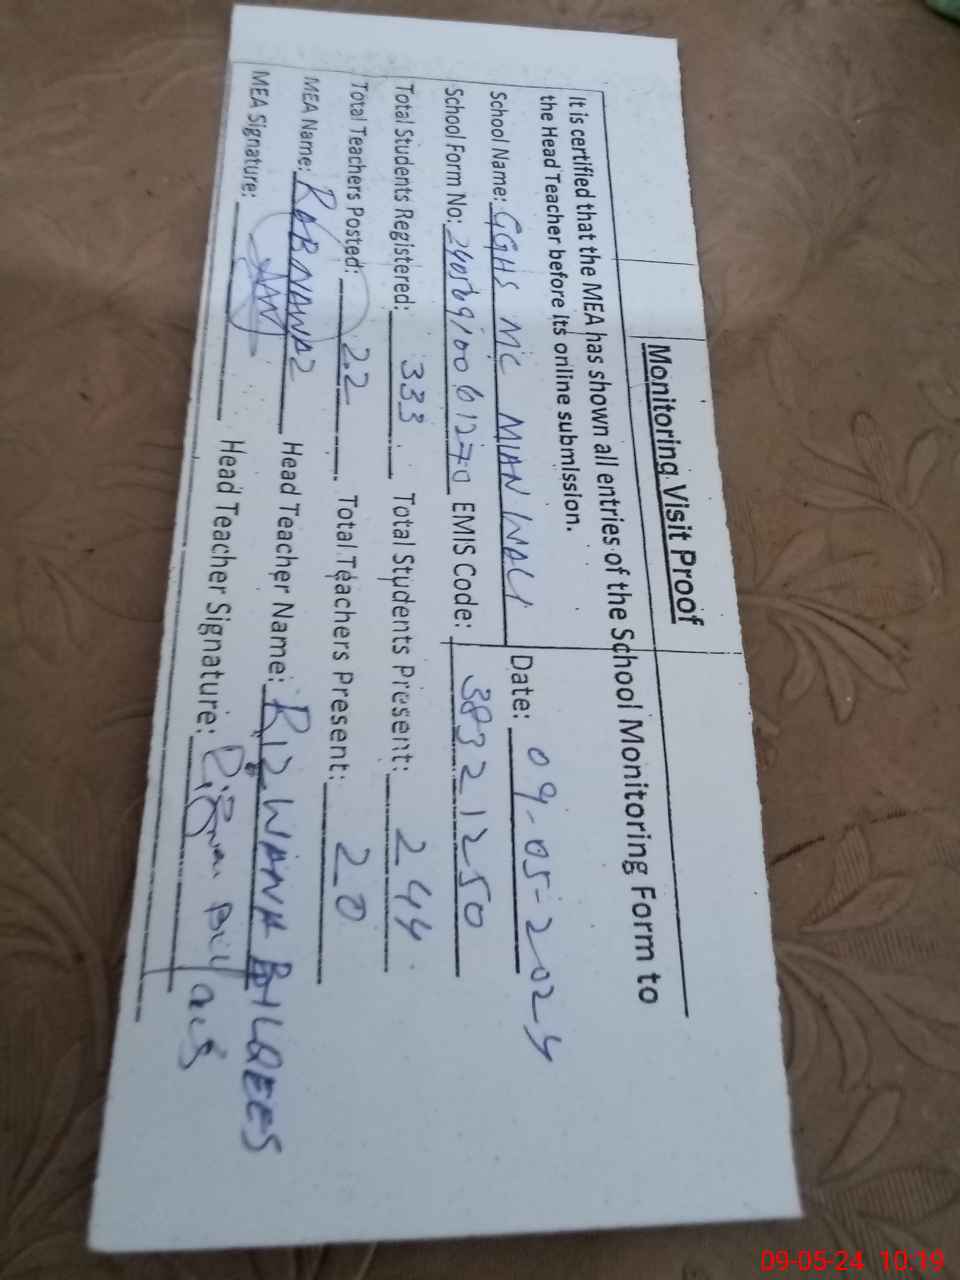 Monitoring Visit Proof
It is certified that the MEA has shown all entries of the School Monitoring Form to
the Head Teacher before its online submission.
School Name: GGHS MC MIANWALI Date: 09-05-2024
School Form No: 24056910061270 EMIS Code: 38321250
Total Students Registered: 333 Total Students Present: 244
Total Teachers Posted: 22 Total Teachers Present: 20
MEA Name: RABNAWAZ Head Teacher Name: RIZWANA BILQEES
MEA Signature: Head Teacher Signature: Rizwana Bilqees
09-05-24 10:19